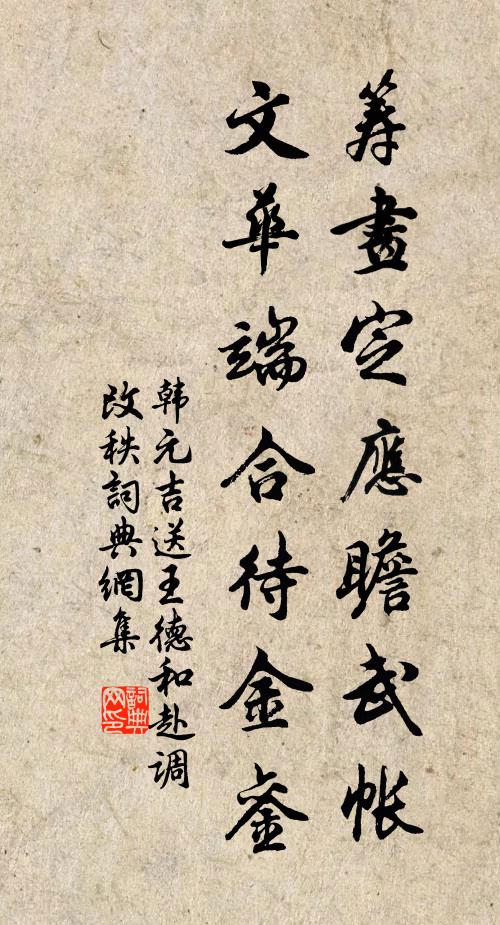 筹畫定應瞻武帐
文華端合待金銮
韩元吉送王德和赴调
改秩詞典網集
詞典网印